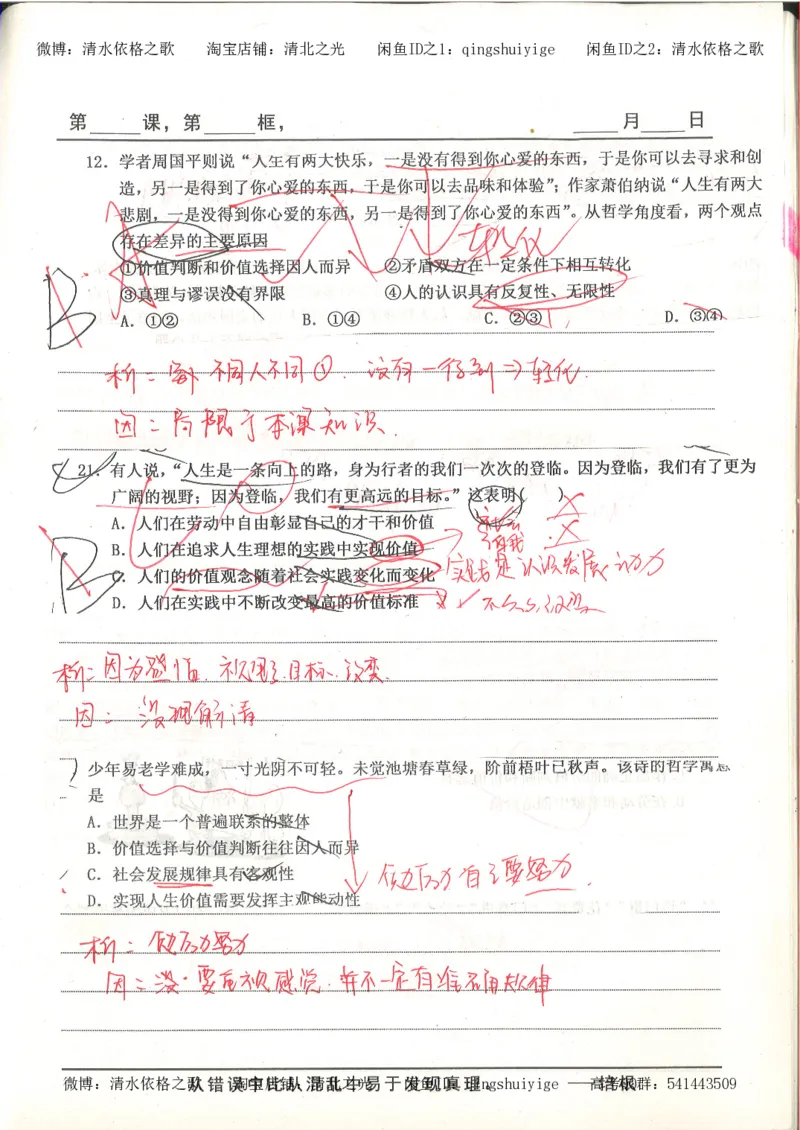 微博：清水依格之歌 淘宝店铺：清北之光 闲鱼ID之1：qingshuiyige 闲鱼ID之2：清水依格之歌
第____课，第____框， ____月____日
12．学者周国平则说“人生有两大快乐，一是没有得到你心爱的东西，于是你可以去寻求和创
造，另一是得到了你心爱的东西，于是你可以去品味和体验”；作家萧伯纳说“人生有两大
悲剧，一是没得到你心爱的东西，另一是得到了你心爱的东西”。从哲学角度看，两个观点
存在差异的主要原因
①价值判断和价值选择因人而异 ②矛盾双方在一定条件下相互转化
③真理与谬误没有界限 ④人的认识具有反复性、无限性
B
A．①② B．①④ C．②③ D．③④
析： 不同人不同① 没有一得到⇒转化．
因：局限于本课知识．
21．有人说，“人生是一条向上的路，身为行者的我们一次次的登临。因为登临，我们有了更为
广阔的视野；因为登临，我们有更高远的目标。”这表明( )
A．人们在劳动中自由彰显自己的才干和价值
B．人们在追求人生理想的实践中实现价值
C．人们的价值观念随着社会实践变化而变化
实践是认识发展动力
B
D．人们在实践中不断改变最高的价值标准
析：因为登临，视野、目标、改变．
因：没理解清
少年易老学难成，一寸光阴不可轻。未觉池塘春草绿，阶前梧叶已秋声。该诗的哲学寓意
是
A．世界是一个普遍联系的整体
B．价值选择与价值判断往往因人而异
C．社会发展规律具有客观性
D．实现人生价值需要发挥主观能动性
析： 努力
因：没 并不一定有 规律
微博：清水依格之歌 淘宝店铺：清北之光 闲鱼ID：qingshuiyige 高考群：541443509
从错误中比从混乱中易于发现真理。——培根